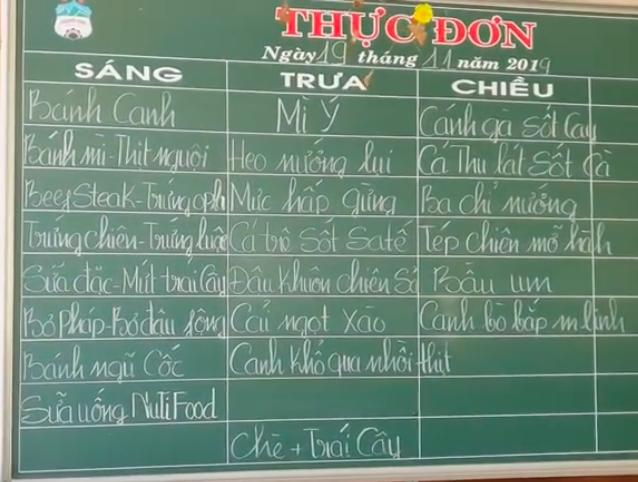 THỰC ĐƠN
Ngày 19 tháng 11 năm 2019
SÁNG TRƯA CHIỀU
Bánh Canh Mì Ý Cánh gà Sốt Cay
Bánh mì - Thịt nguội Heo nướng lụi Cá Thu lát Sốt Cà
BeefSteak - Trứng opla Mực hấp gừng Ba chỉ nướng
Trứng chiên - Trứng luộc Cá trê Sốt Saté Tép chiên mỡ hành
Sữa đặc - Mứt trái Cây Đậu Khuôn chiên Sả Bầu um
Bơ Pháp - Bơ đậu phộng Cải ngọt Xào Canh bò bắp
Bánh ngũ Cốc Canh khổ qua nhồi thịt
Sữa uống NutiFood
Chè + Trái Cây